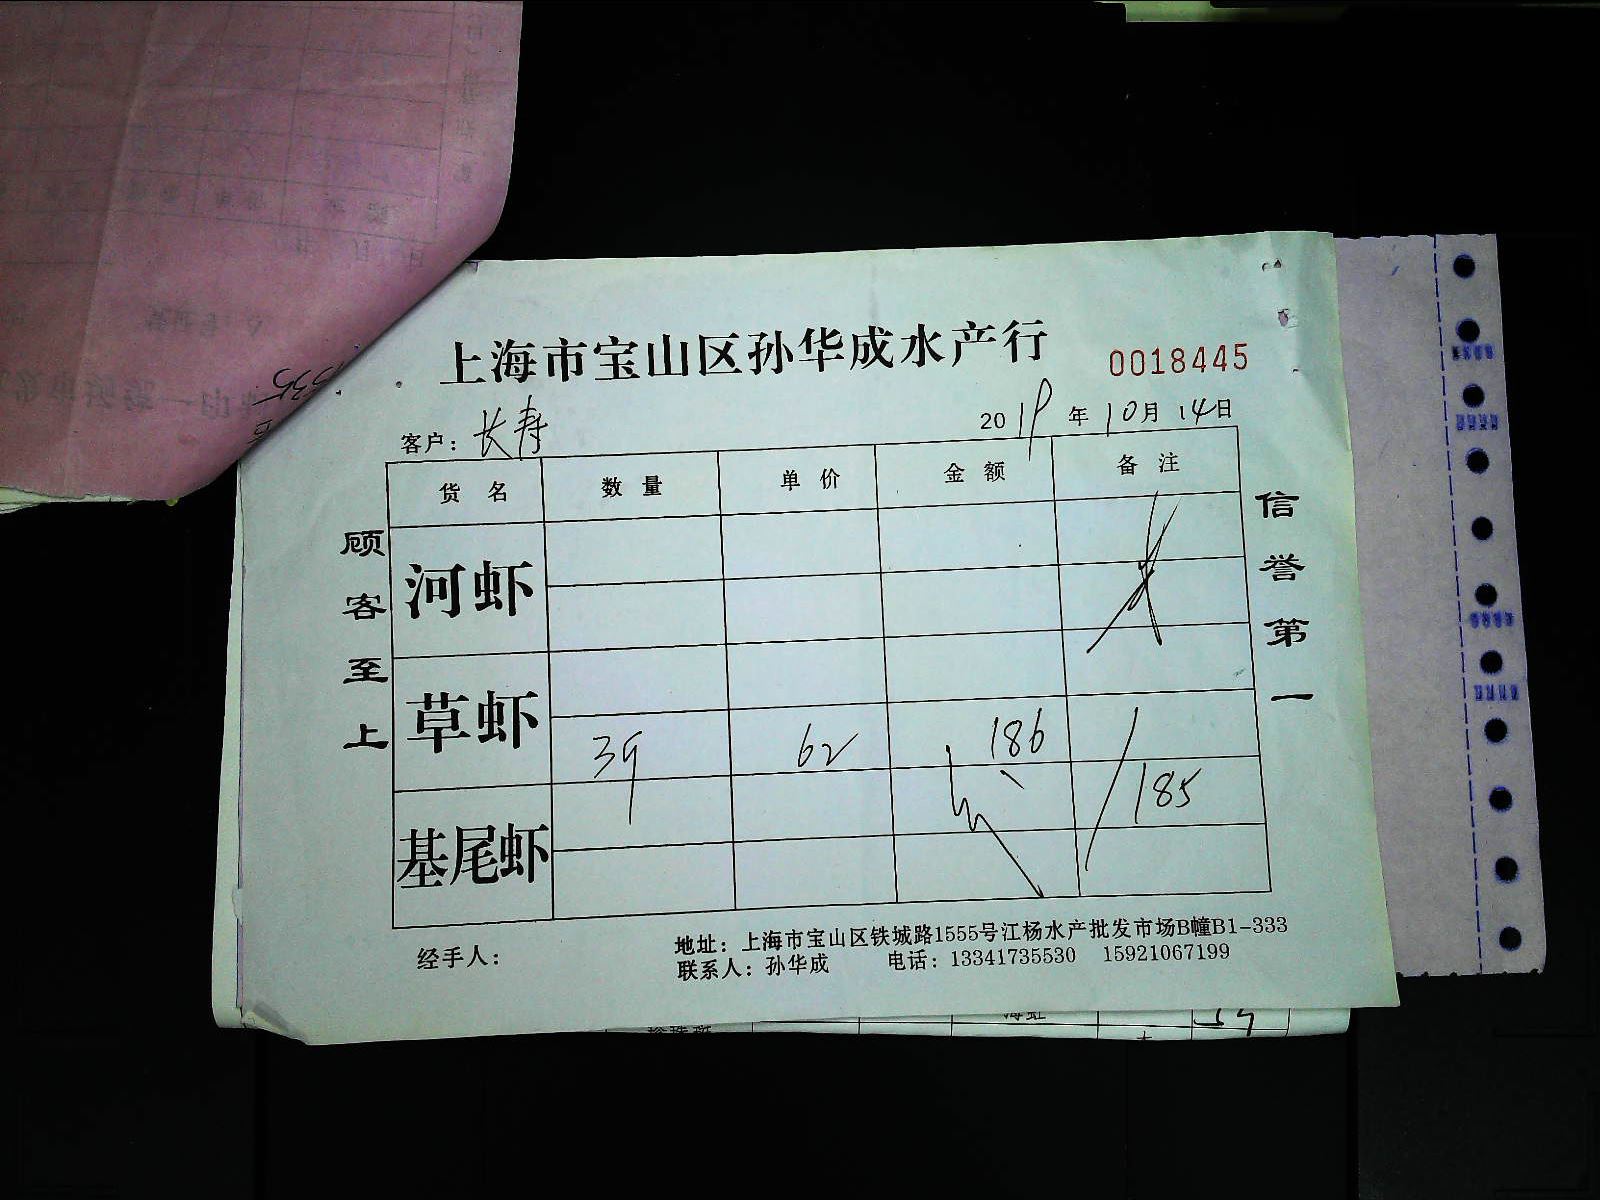 上海市宝山区孙华成水产行
0018445
客户：长寿
2019年10月14日
货名 数量 单价 金额 备注
河虾
草虾
3斤 62 186
185
基尾虾
顾客至上
信誉第一
经手人：
地址：上海市宝山区铁城路1555号江杨水产批发市场B幢B1-333
联系人：孙华成 电话：13341735530 15921067199